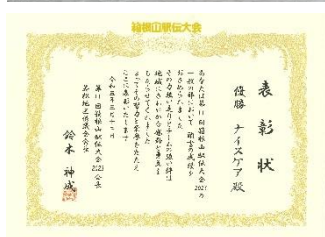 箱根山駅伝大会
表彰状
優勝 ナイスケア殿
あなたは第11回箱根山駅伝大会2023
一般の部において 頭書の成績を
おさめられました
その力強い走りとチームの強い絆は
地域にさわやかな感動と勇気を
もたらせてくれました
よってその努力と栄誉をたたえ
ここに表彰いたします
令和五年三月
第11回箱根山駅伝大会2023 会長
若松地区協議会会長
鈴木 神成